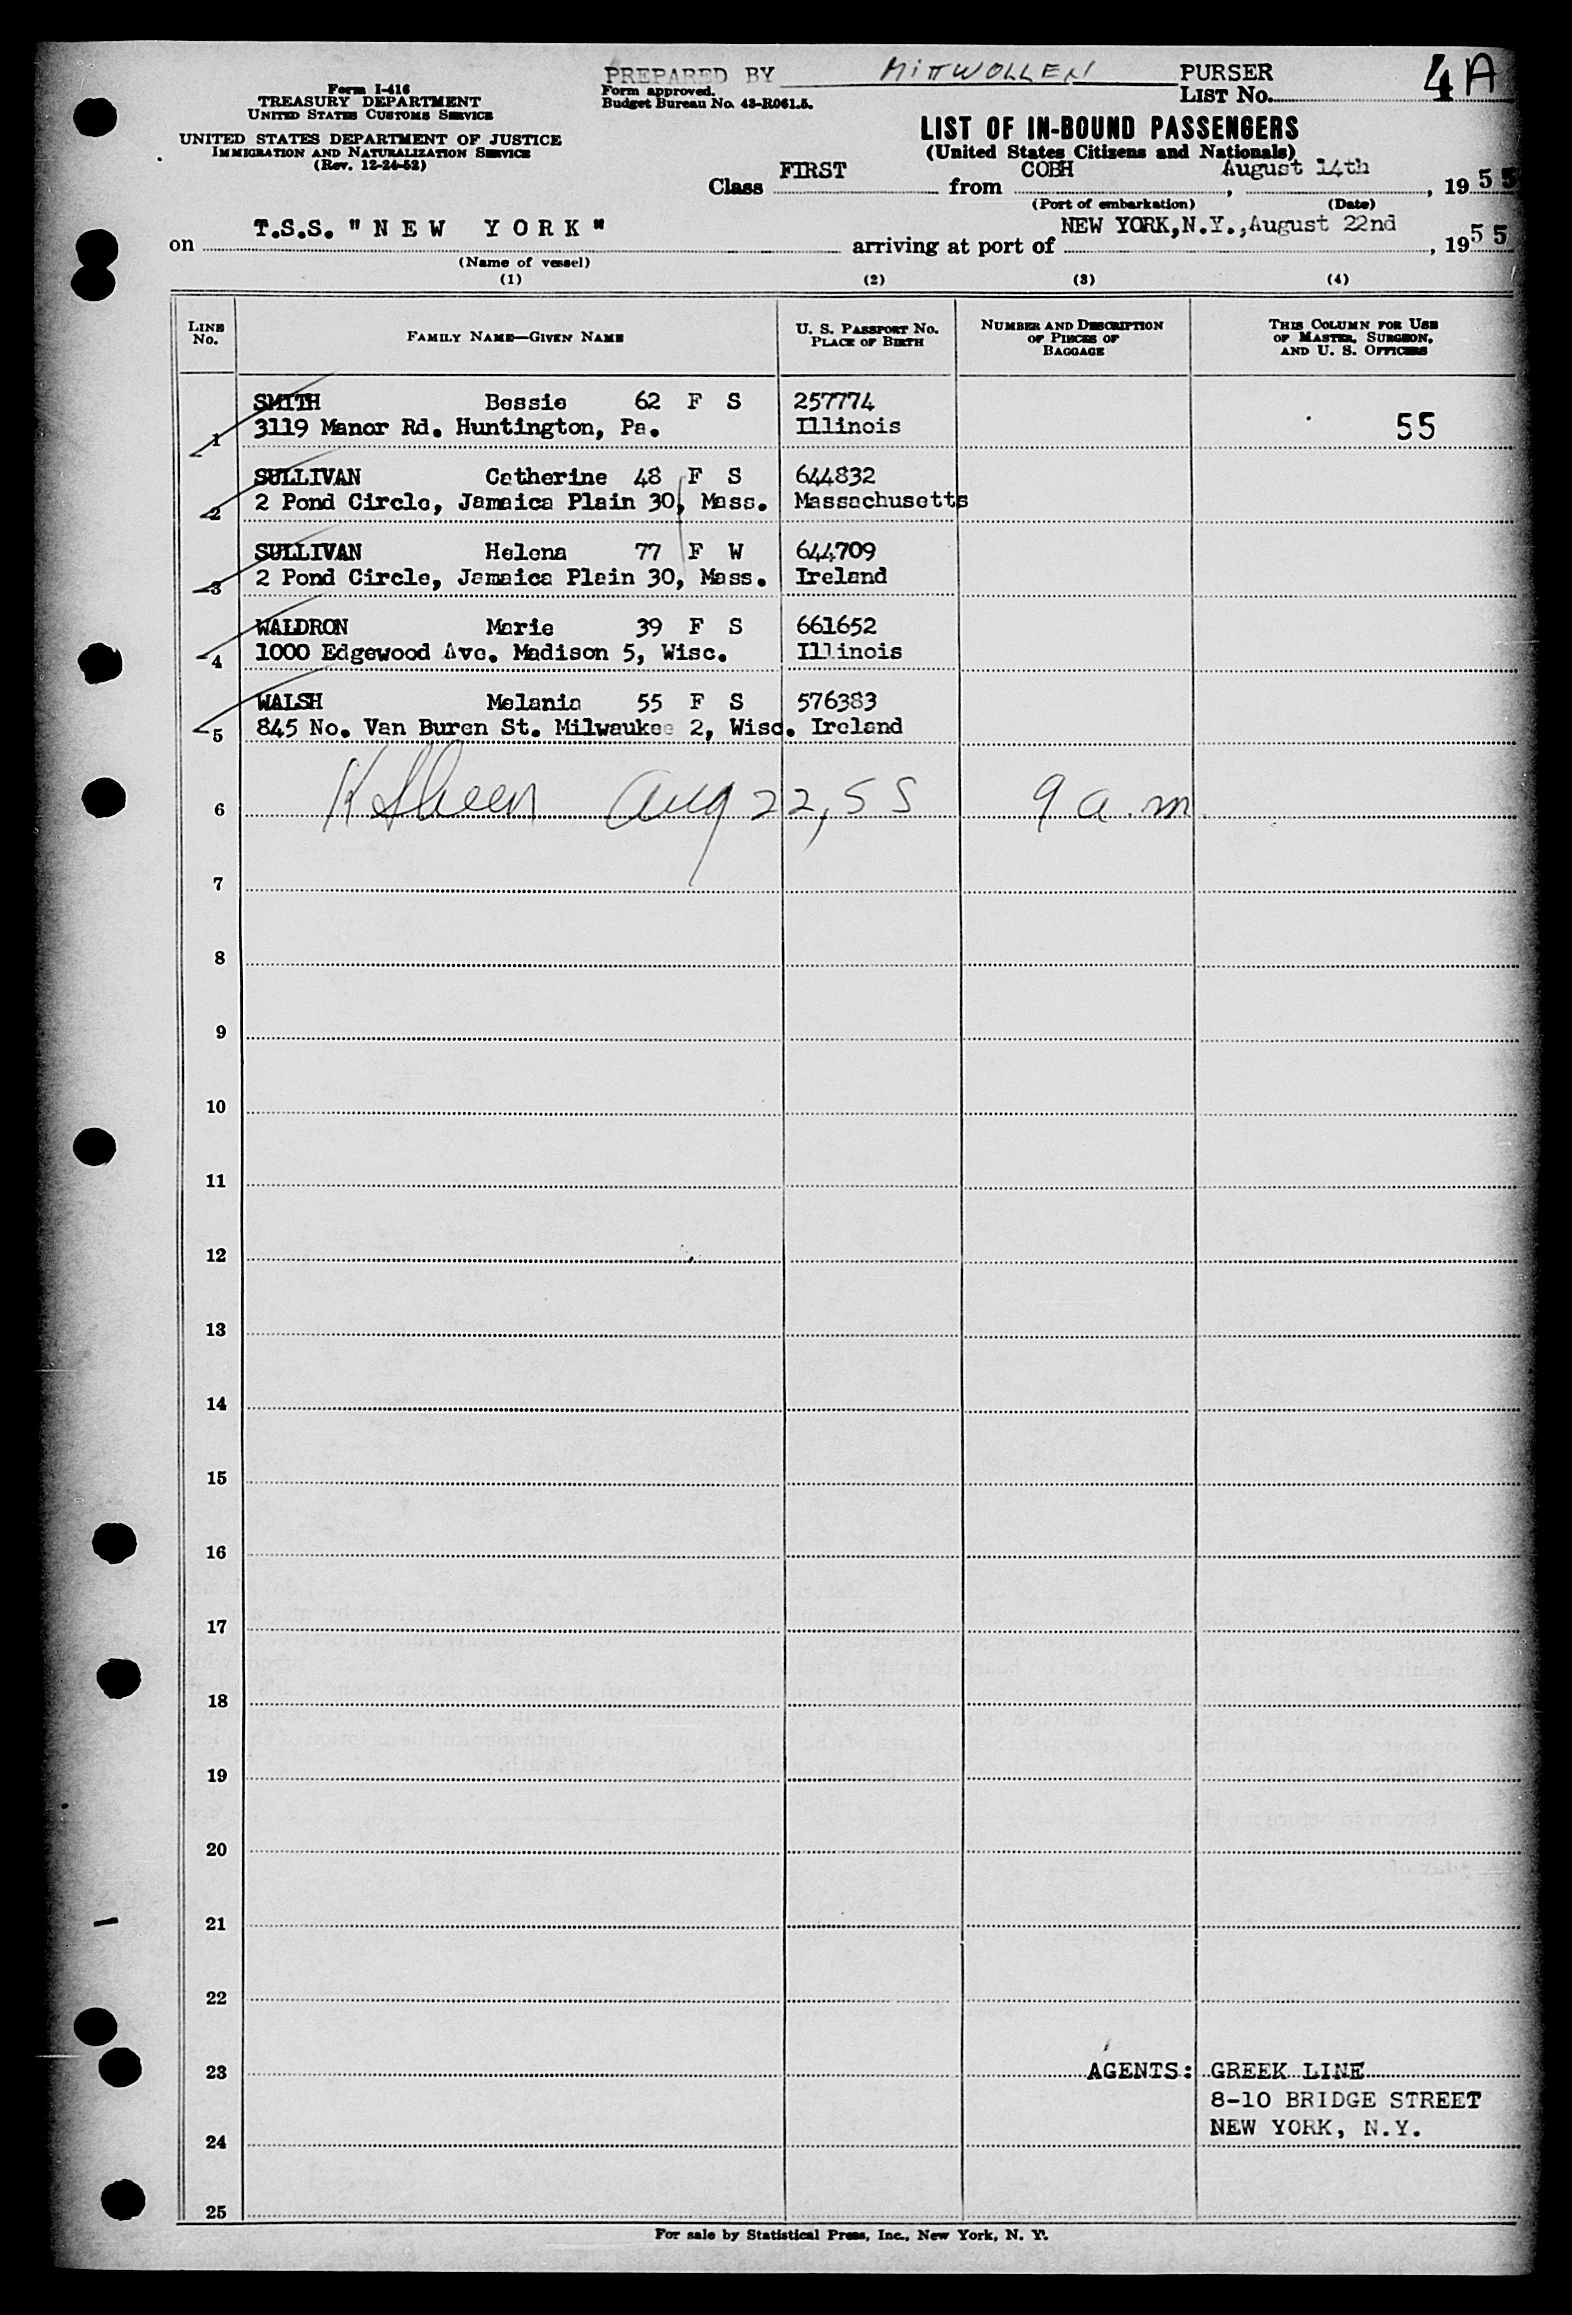 PREPARED BY MITTWOLLEN PURSER
4A
Form I-416
TREASURY DEPARTMENT
UNITED STATES CUSTOMS SERVICE
UNITED STATES DEPARTMENT OF JUSTICE
IMMIGRATION AND NATURALIZATION SERVICE
(Rev. 12-24-52)
Form approved.
Budget Bureau No. 43-R061.5.
LIST No.
LIST OF IN-BOUND PASSENGERS
(United States Citizens and Nationals)
Class FIRST from COBH, August 14th, 1955
(Port of embarkation) (Date)
on T.S.S. "NEW YORK" arriving at port of NEW YORK,N.Y.,August 22nd, 1955
(Name of vessel)
(1) (2) (3) (4)
LINE No. FAMILY NAME—GIVEN NAME U. S. PASSPORT NO. PLACE OF BIRTH NUMBER AND DESCRIPTION OF PIECES OF BAGGAGE THIS COLUMN FOR USE OF MASTER, SURGEON, AND U. S. OFFICERS
SMITH Bessie 62 F S 257774
1 3119 Manor Rd. Huntington, Pa. Illinois 55
SULLIVAN Catherine 48 F S 644832
2 2 Pond Circle, Jamaica Plain 30, Mass. Massachusetts
SULLIVAN Helena 77 F W 644709
3 2 Pond Circle, Jamaica Plain 30, Mass. Ireland
WALDRON Marie 39 F S 661652
4 1000 Edgewood Ave. Madison 5, Wisc. Illinois
WALSH Melania 55 F S 576383
5 845 No. Van Buren St. Milwaukee 2, Wisc. Ireland
6 Aug 22, 55 9 a.m.
7
8
9
10
11
12
13
14
15
16
17
18
19
20
21
22
23 AGENTS: GREEK LINE
8-10 BRIDGE STREET
24 NEW YORK, N.Y.
25
For sale by Statistical Press, Inc., New York, N. Y.